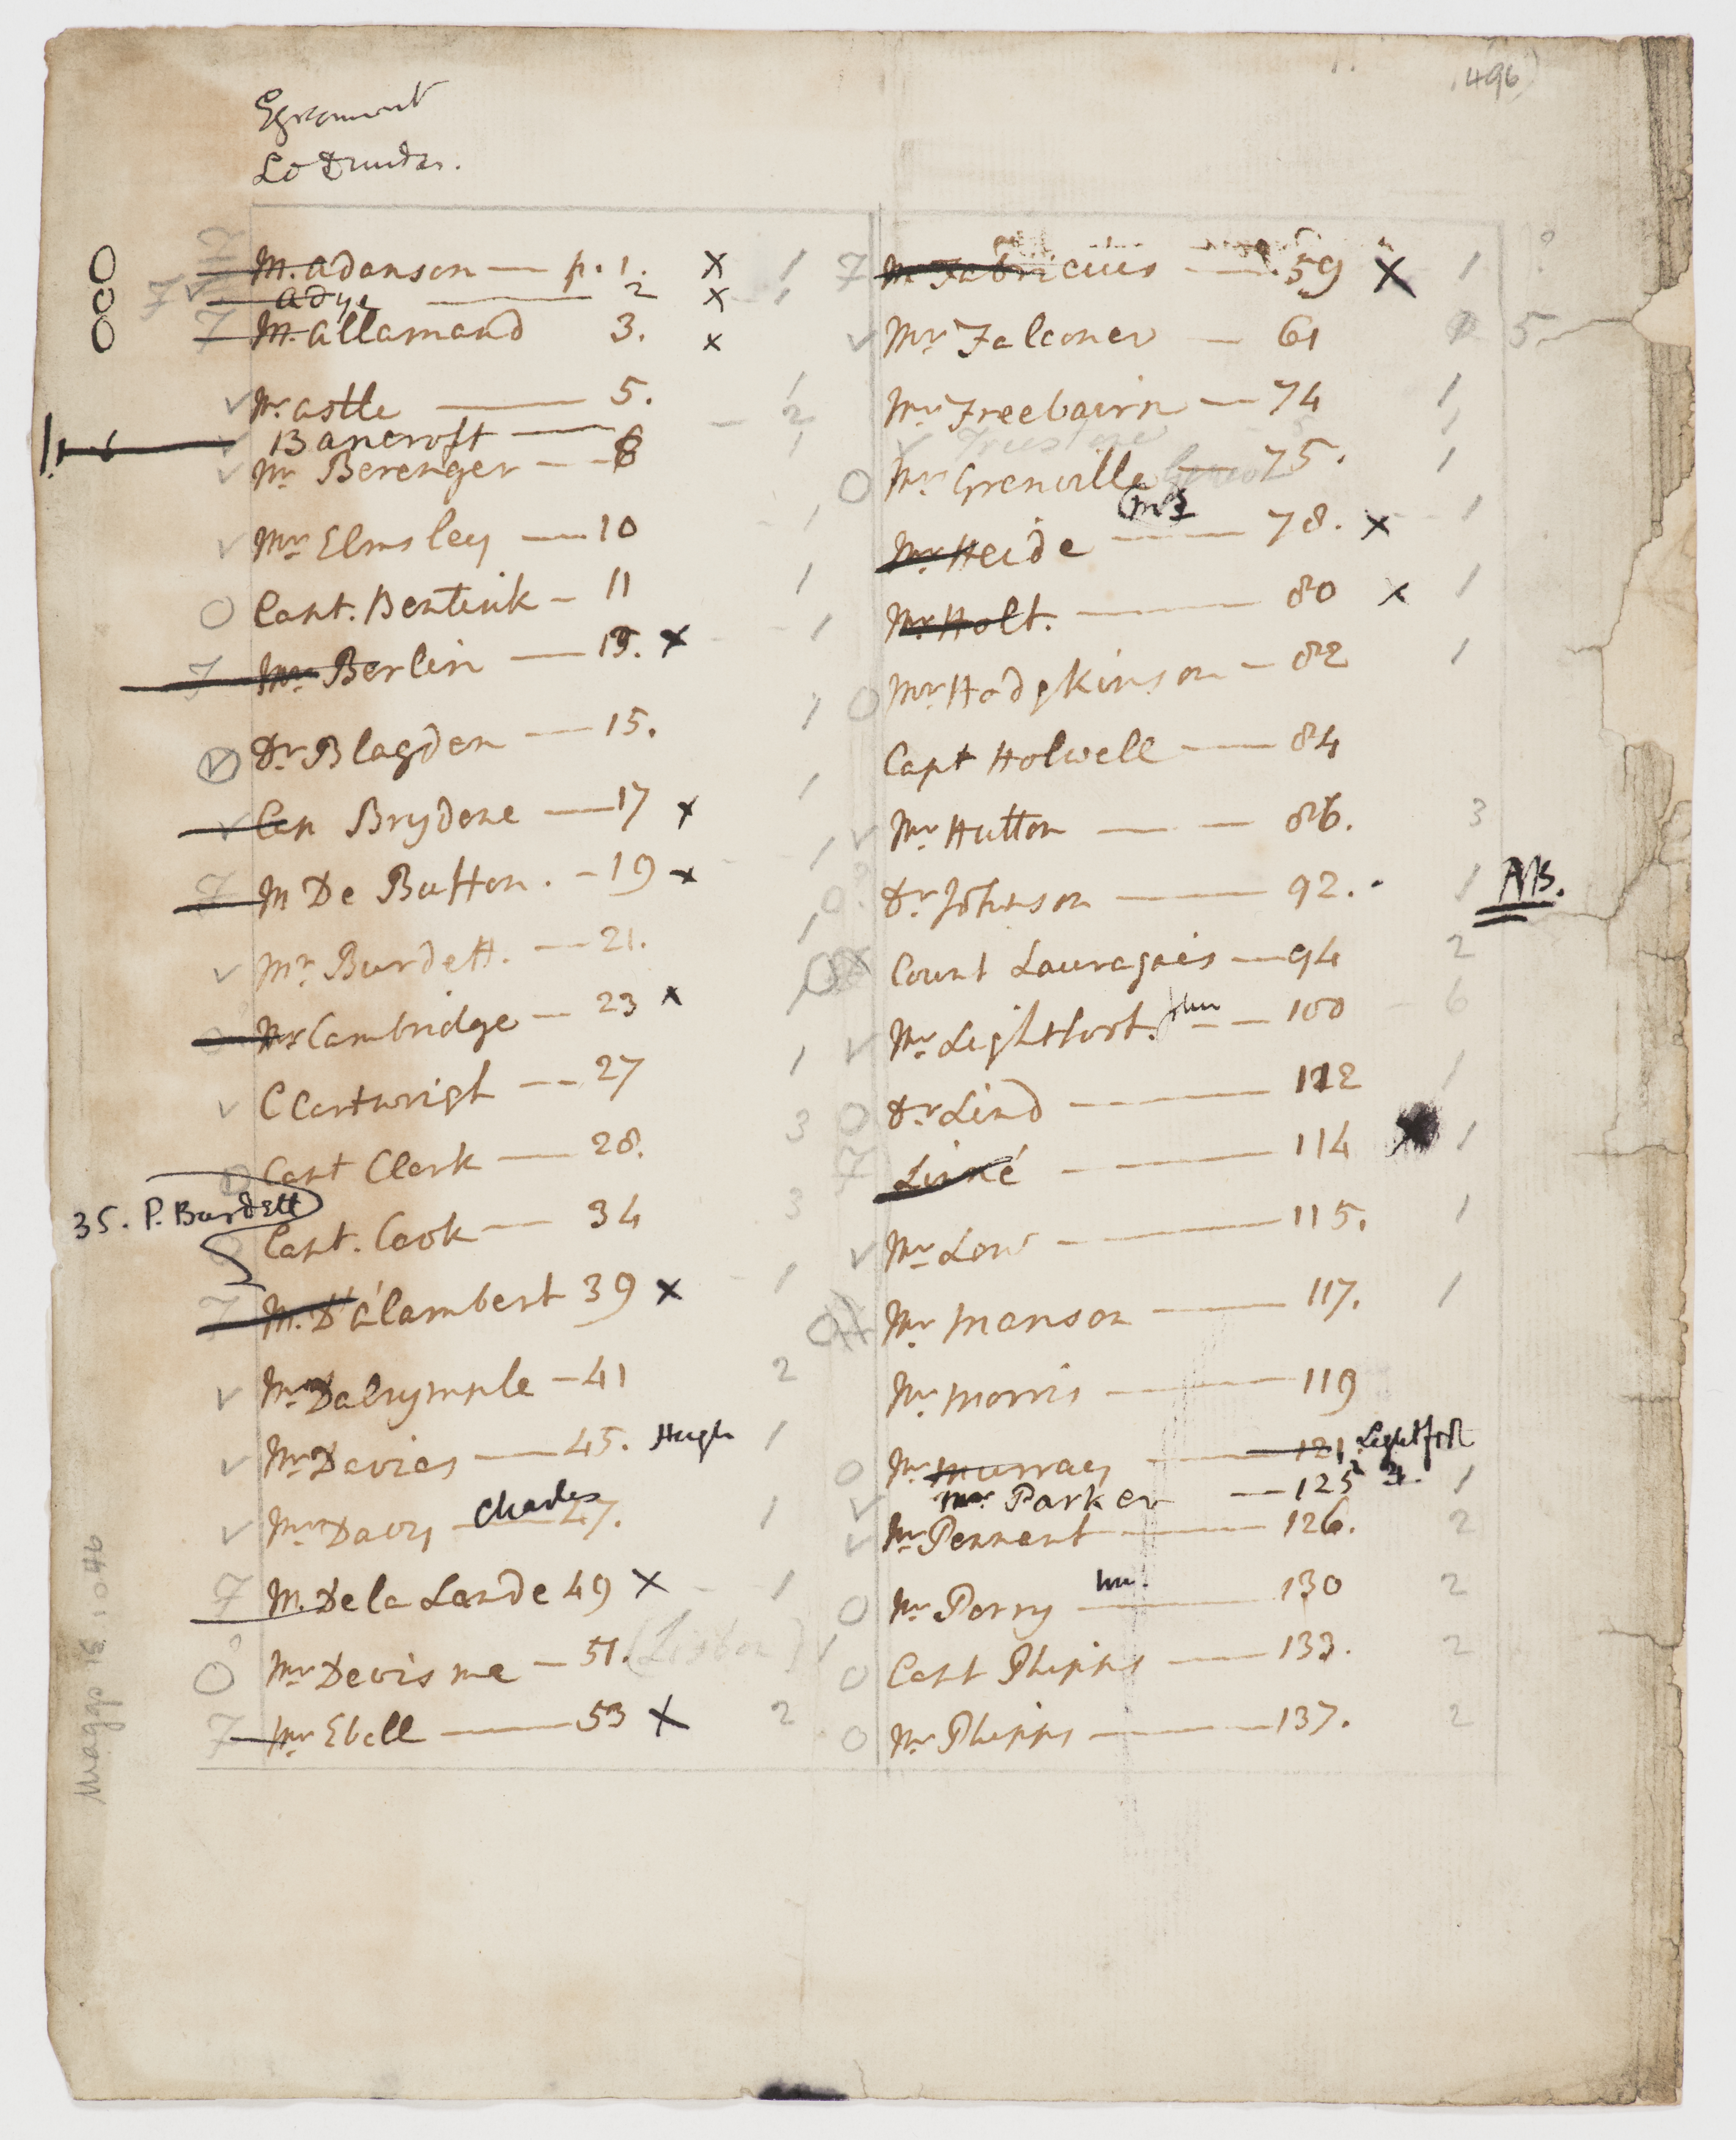 496
Egremont
Ld Dundas.
M. Adanson — p. 1. x 1
Adye — 2 x 1
M. Allamand 3. x
Mr. Astle — 5. 1
Bancroft — 6 2
Mr. Berenger — 8 1
Mr. Elmsley — 10 1
Capt. Bentink — 11 1
Mr. Berlin — 13. x 1
Dr. Blagden — 15. 1
Cap Brydone — 17 x 1
M De Buffon. — 19 x 1
Mr. Burdett. — 21. 1
Mr Cambridge — 23 x
C Cartwrigh — 27 1
Capt Clerk — 28. 3
35. P. Burdett
Capt. Cook — 34 3
M. D'Alambert 39 x 1
Mr. Dalrymple — 41 2
Mr. Davies — 45. Hugh 1
Mr. Davy — Charles 47. 1
M. De la Lande 49 x 1
Mr. Devisme — 51. (Lisbon) 1
Mr. Ebell — 53 x 2
M Fabricius — 59 x 1
Mr. Falconer — 61 5
Mr. Freebairn — 74 1
Mr. Grenville — 75. 1
Mr. Heide — 78. x 1
Mr. Holt. — 80 x 1
Mr. Hodgkinson — 82 1
Capt Holwell — 84
Mr. Hutton — 86. 3
Dr. Johnson — 92. 1 NB.
Count Lauragais — 94 2
Mr. Lightfoot. Jhn — 100 6
Dr. Lind — 112 1
Linné — 114 1
Mr. Low — 115. 1
Mr. Manson — 117. 1
Mr. Morris — 119
Mr. Murray — 121. Lightfoot
Mr. Parker — 125 1
Mr. Pennant — 126. 2
Mr. Perry — 130 2
Capt Phipps — 133. 2
Mr. Phipps — 137. 2
Maggs 15 1046